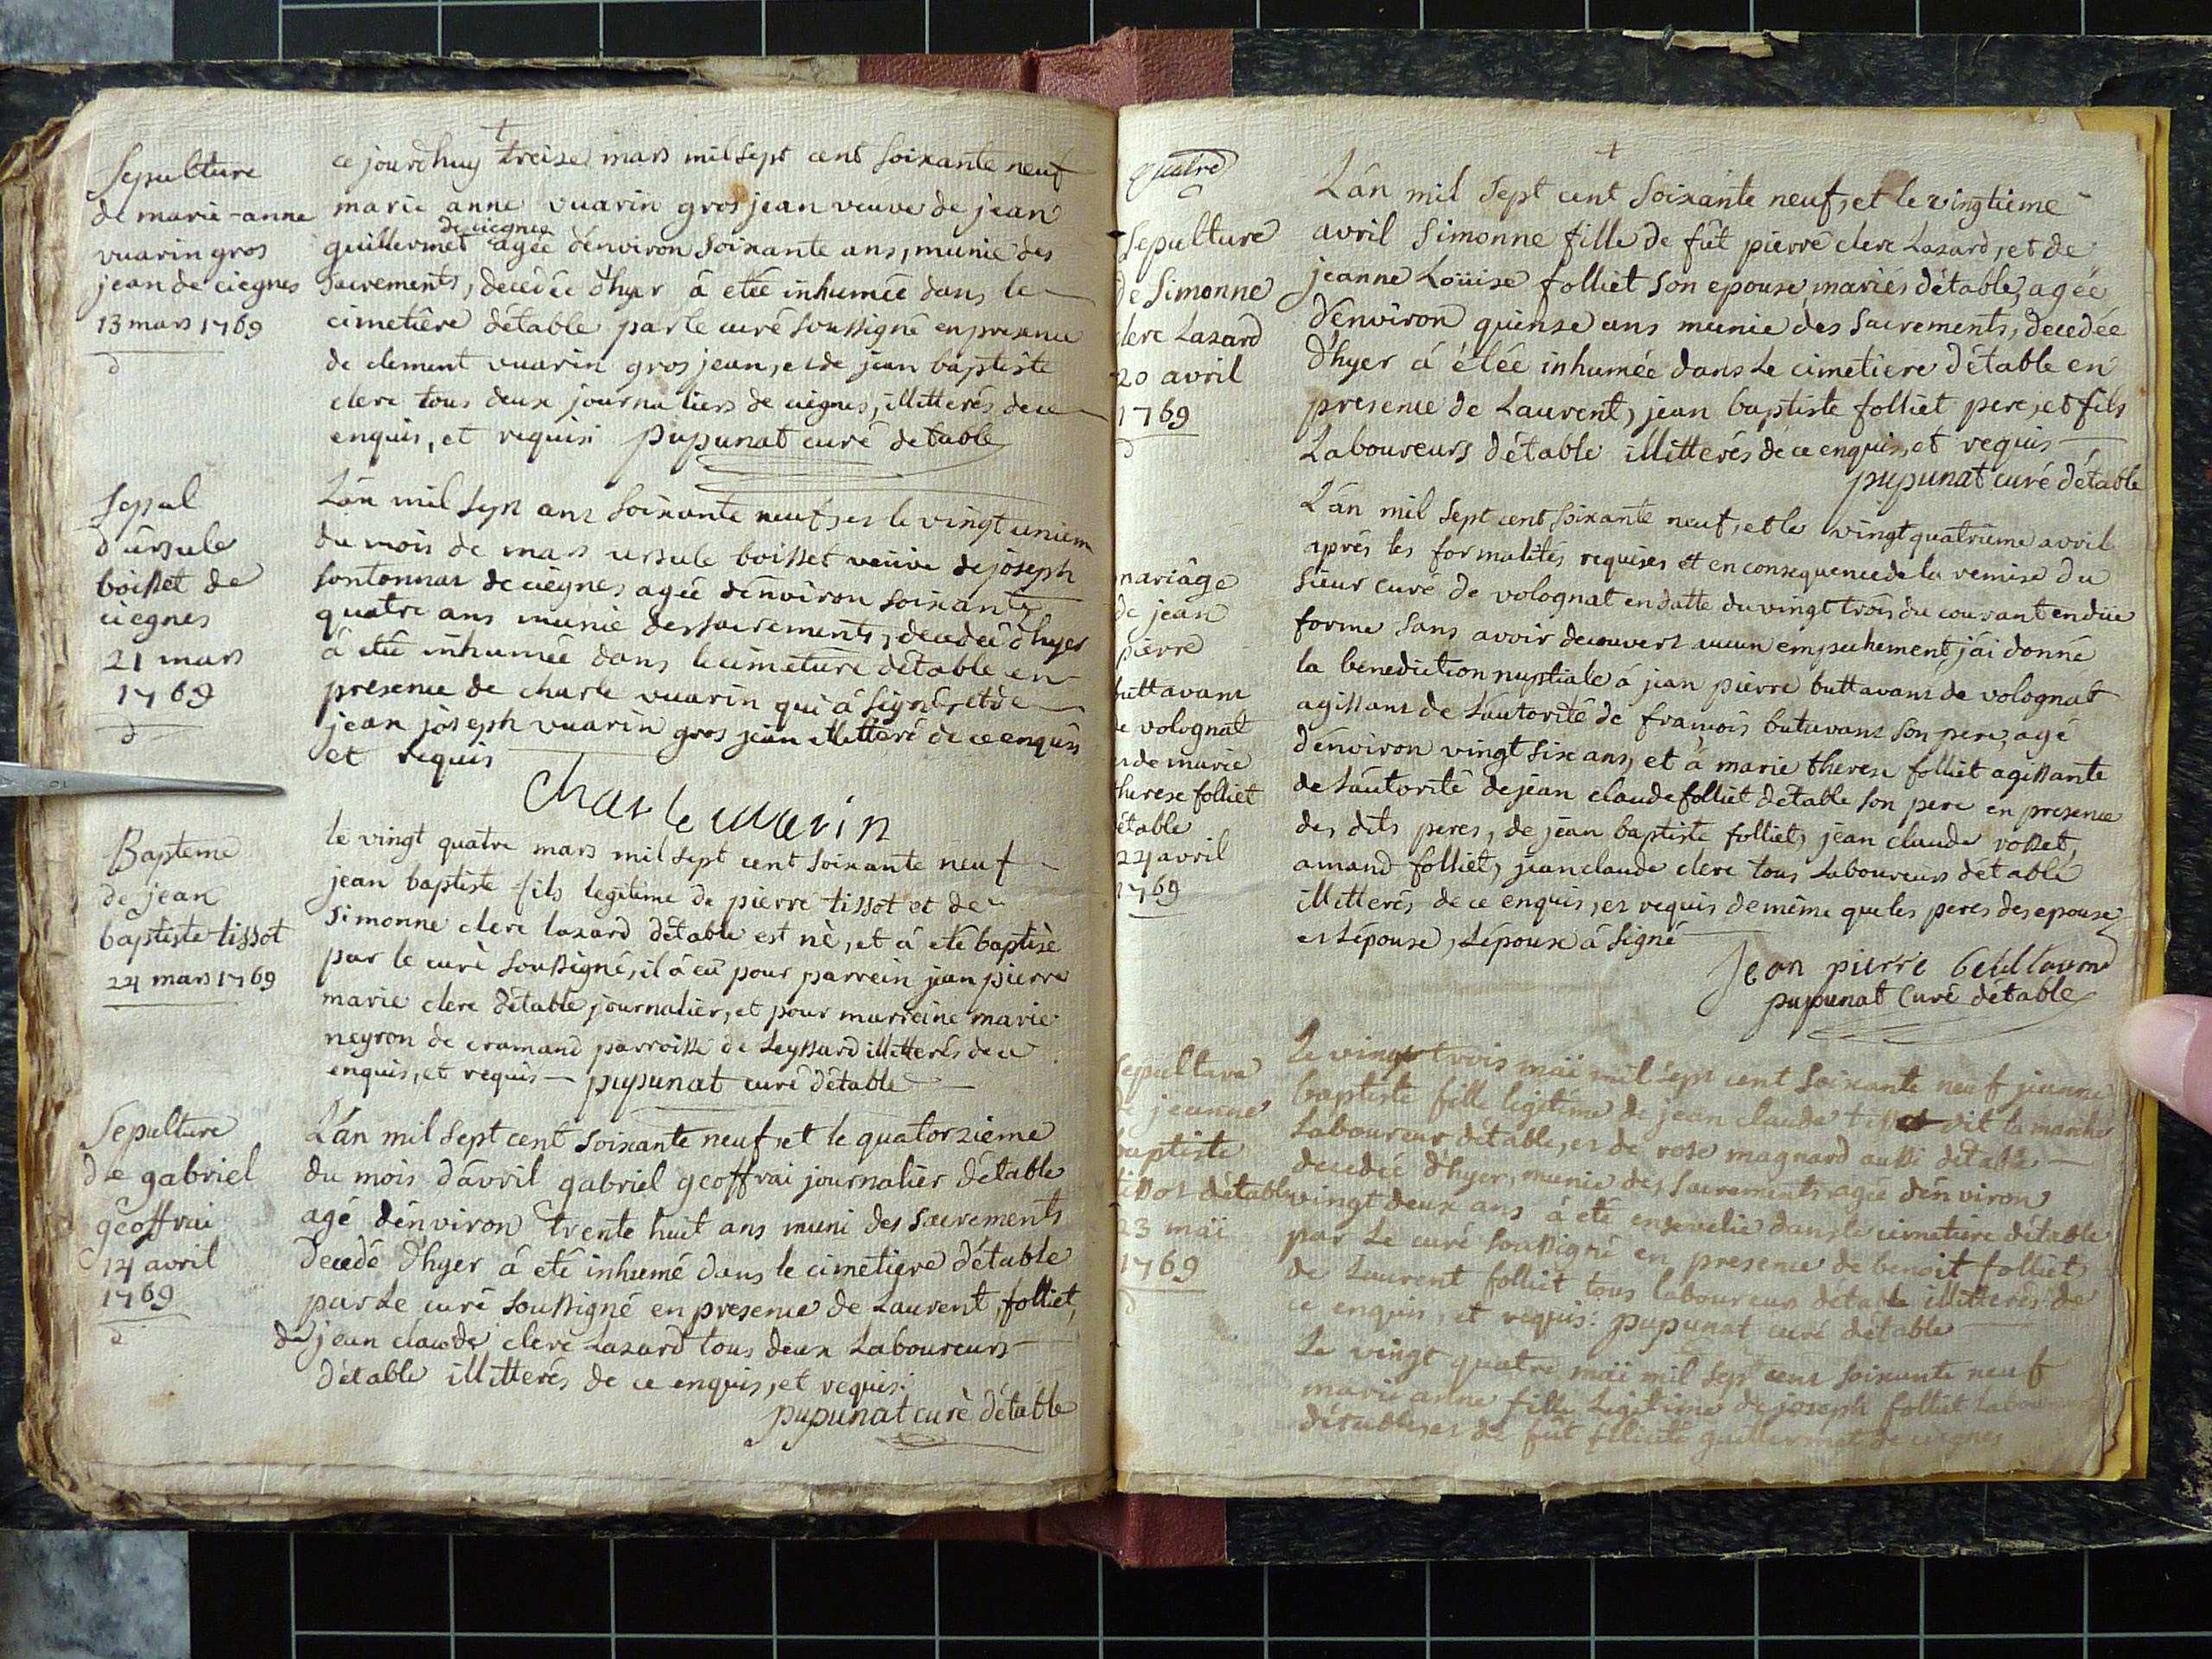 +
Sepulture
de marie-anne
vuarin gros
jean de ciegnes
13 mars 1769
d
ce jourdhuy treize mars mil sept cent soixante neuf
marie anne vuarin gros jean veuve de jean
de ciegnes
guillermet agée dénviron soixante ans, munie des
sacrements, decedée d'hyer á etée inhumée dans le
cimetiere détable par le curé soussigné en presence
de clement vuarin gros jean, et de jean baptiste
clerc tous deux journaliers de ciegnes, illitterés de ce
enquis, et requis pupunat curé detable
Sepul
d'ursule
boisset de
ciegnes
21 mars
1769
d
L'án mil sept cent soixante neuf, et le vingt uniem
du mois de mars ursule boisset veuve de joseph
fontannaz de ciegnes agée dénviron soixante
quatre ans munie des sacrements, decedée d'hyer
á etée inhumée dans le cimetiere détable en
presence de charle vuarin qui á signé, et de
jean joseph vuarin gros jean illitteré de ce enquis
et requis
Charle uuarin
Bapteme
de jean
baptiste tissot
24 mars 1769
le vingt quatre mars mil sept cent soixante neuf
jean baptiste fils legitime de pierre tissot et de
simonne clerc lazard détable est né, et á eté baptisé
par le curé soussigné, il á eû pour parrein jean pierre
marie clerc détable journalier, et pour marreine marie
neyron de cramand parroisse de Leyssard illitterés de ce
enquis, et requis — pupunat curé détable
Sepulture
de gabriel
geoffrai
14 avril
1769
d
L'án mil sept cent soixante neuf, et le quatorzieme
du mois d'avril gabriel geoffrai journalier détable
agé dénviron trente huit ans muni des sacrements
decedé d'hyer á eté inhumé dans le cimetiere détable
par Le curé soussigné en presence de Laurent folliet,
de jean claude clerc Lazard tous deux Laboureurs
détable illitterés de ce enquis, et requis;
pupunat curé détable
quatre
+
Sepulture
de Simonne
clerc Lazard
20 avril
1769
d
L'án mil sept cent soixante neuf, et le vingtieme
avril Simonne fille de fût pierre clerc Lazard, et de
jeanne Loüise folliet son epouse, mariés détable, agée
dénviron quinze ans munie des sacrements, decedée
d'hyer á étée inhumée dans Le cimetiere détable en
presence de Laurent, jean baptiste folliet pere, et fils
Laboureurs détable illitterés de ce enquis, et requis
pupunat curé détable
mariage
de jean
pierre
buttavant
de volognat
et de marie
therese folliet
étable
24 avril
1769
L'án mil sept cent soixante neuf, et le vingt quatrieme avril
aprés les formalités requises et en consequence de la remise du
sieur curé de volognat en datte du vingt trois du courant en düe
forme sans avoir decouvert aucun empechement, j'ai donné
la benediction nuptiale á jean pierre buttavant de volognat
agissant de L'autorité de francois butavant son pere, agé
dénviron vingt six ans, et á marie therese folliet agissante
de L'autorité de jean claude folliet détable son pere en presence
des dits peres, de jean baptiste folliet, jean claude rosset,
amand folliet, jean claude clerc tous Laboureurs détable
illitterés de ce enquis, et requis de même que les peres des epouse
et L'épouse, L'époux á signé
Jean pierre
pupunat Curé détable
Sepulture
de jeanne
baptiste
tissot détable
23 maï
1769
d
Le vingt trois maï mil sept cent soixante neuf jeanne
baptiste fille legitime de jean claude tissot dit le marche
Laboureur détable, et de rose magnard aussi détable
decedée d'hyer, munie des sacrements agée dénviron
vingt deux ans á eté ensevelie dans le cimetiere détable
par Le curé soussigné en presence de benoit folliet
de Laurent folliet tous laboureurs détable illitterés de
ce enquis, et requis: pupunat curé détable
Le vingt quatre maï mil sept cent soixante neuf
marie anne fille Legitime de joseph folliet
détable, et de fût felicité guillermet de ciegnes